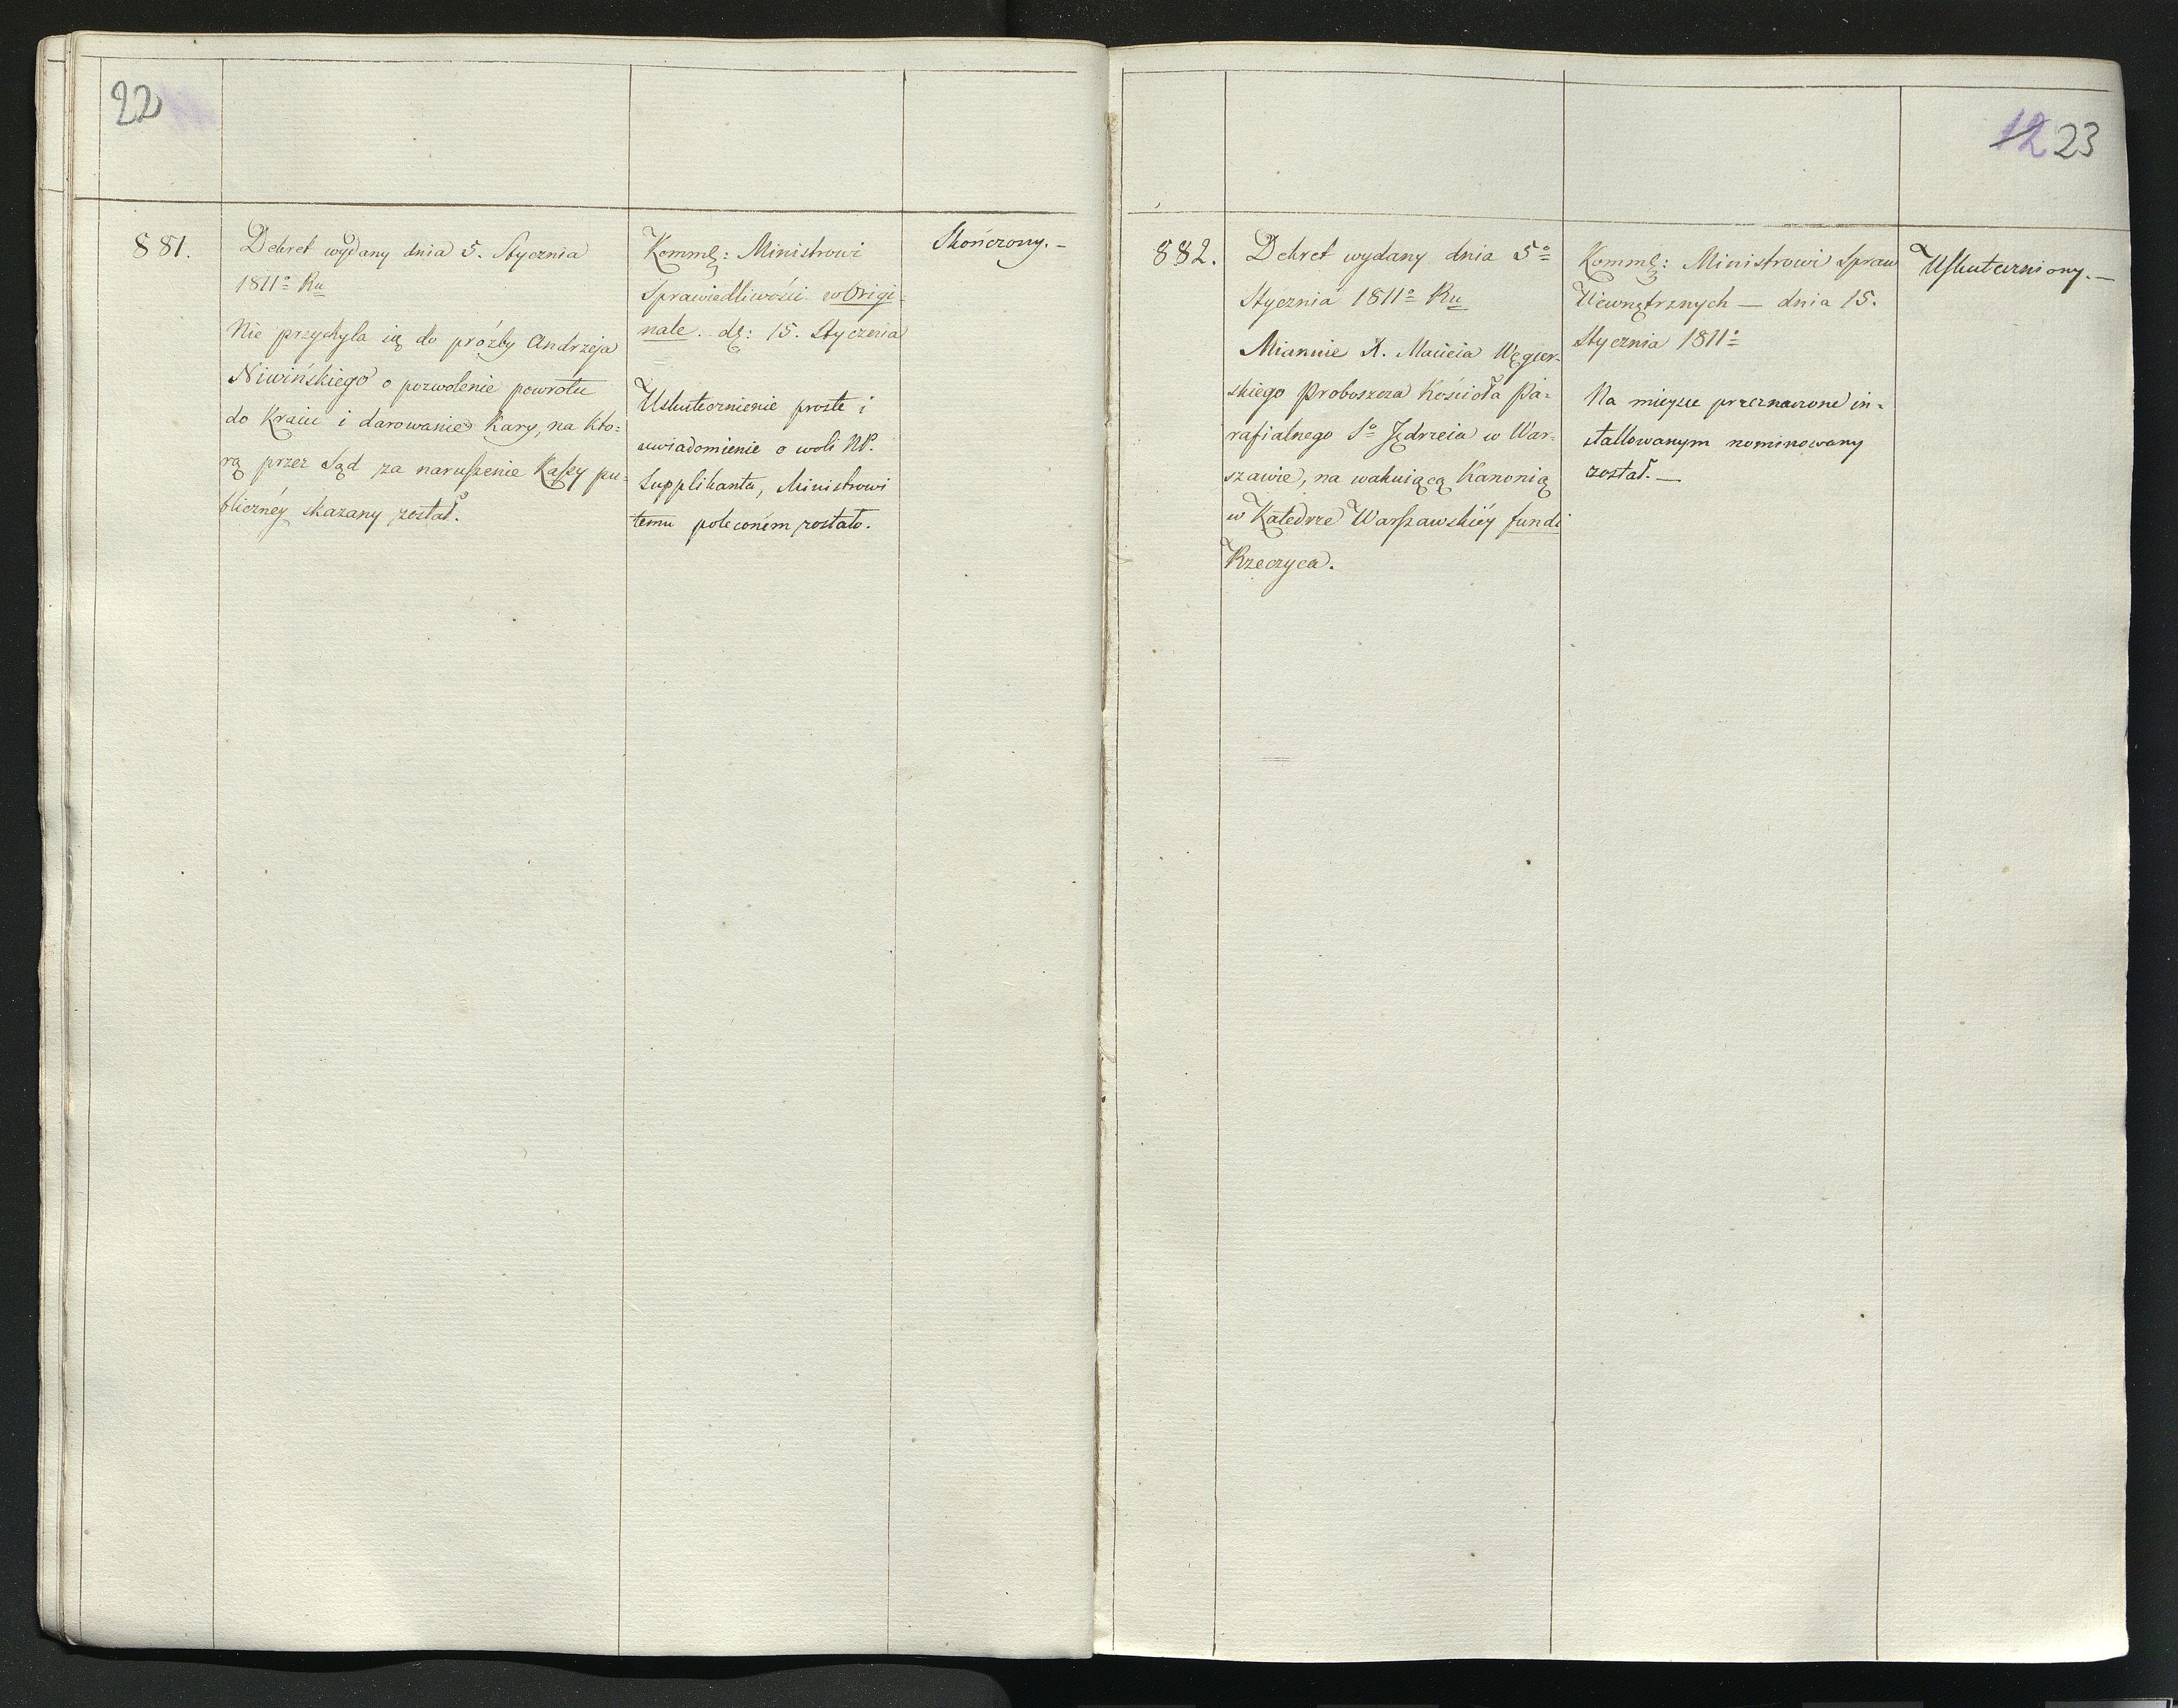 22
881.
Dekret wydany dnia 5. Stycznia
1811º Ru
Nie przychyla się do próżby Andrzeja
Niwińskiego o pozwolenie powrotu
do Kraiu i darowanie Kary, na któ=
rą przez Sąd za naruszenie Kassy pu=
bliczney skazany został.
Komm: Ministrowi
Sprawiedliwości w Origi=
nale. d: 15. Stycznia
Uskutecznienie proste i
uwiadomienie o woli NP.
Supplikanta, Ministrowi
temu poleconém zostało.
Skończony. –
12 23
882.
Dekret wydany dnia 5º
Stycznia 1811º Ru
Mianuie X. Macieia Węgier=
skiego Proboszcza Kościoła Pa=
rafialnego Sº Jędrzeia w War=
szawie, na wakuiącą Kanonią
w Katedrze Warszawskiéy fundi
Rzeczyca.
Komm: Ministrowi Spraw
Wewnętrznych — dnia 15.
Stycznia 1811º
Na mieysce przeznaczone in=
stallowanym nominowany
został. —
Uskuteczniony. —